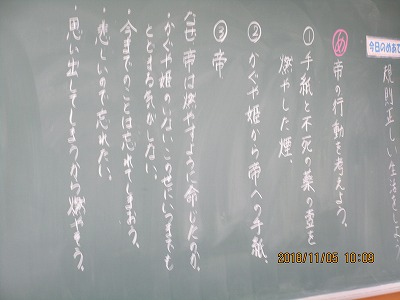 今日のめあて
規則正しい生活をしよう
め 帝の行動を考えよう。
①手紙と不死の薬の壺を
燃やした煙。
②かぐや姫から帝への手紙、
③帝
なぜ帝は燃やすように命じたのか。
・かぐや姫のないこのせにいつまでも
とどまる気がしない。
・今までのことは忘れてしまおう。
・悲しいので忘れたい。
・思い出してしまうから燃やそう。
2018/11/05 10:09